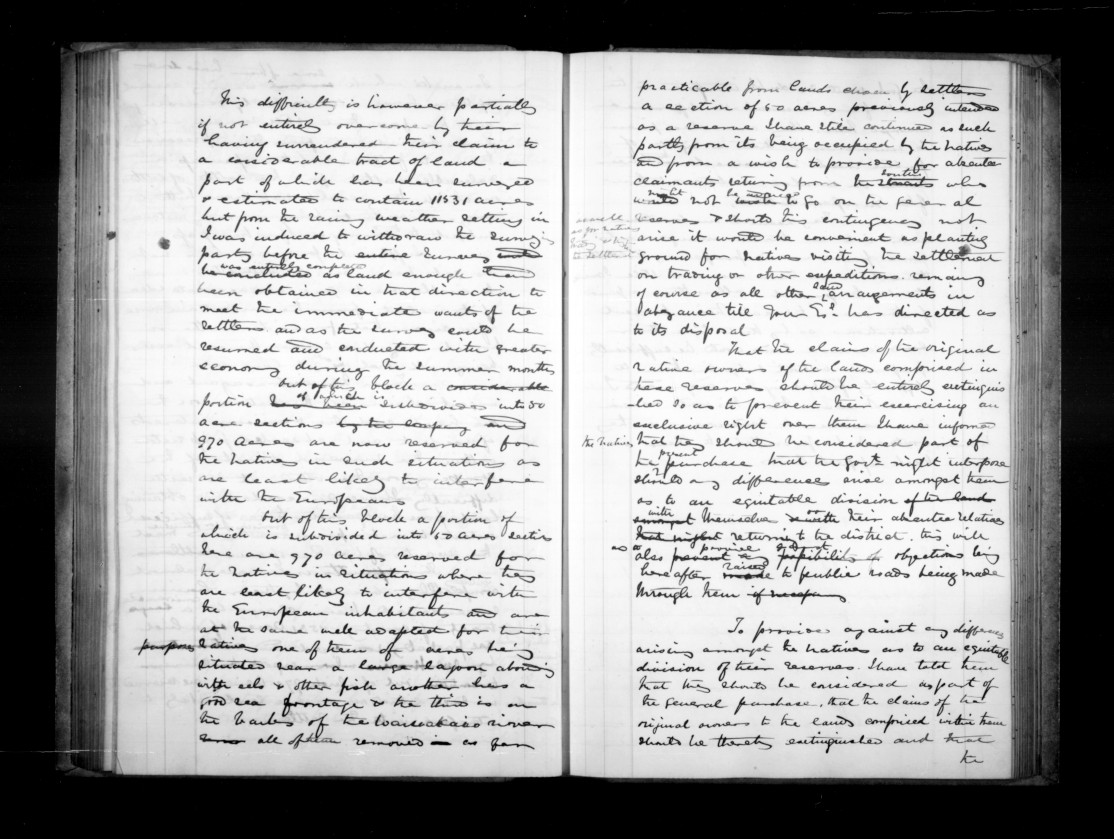 This difficulty is however partially
if not entirely overcome by their
having surrendered their claim to
a considerable tract of land a
part of which has been surveyed
& estimated to contain 11531 acres
but from the rainy weather setting in
I was induced to withdraw the surveying
party before the entire survey
was entirely completed
be concluded as land enough had
been obtained in that direction to
meet the immediate wants of the
settlers and as the survey could be
resumed and conducted with greater
economy during the summer months
Out of this block a considerable
of which is
portion has been subdivided into 50
acre sections by the Company and
970 acres are now reserved for
the natives in such situations as
are least likely to interfere
with the Europeans
Out of this block a portion of
which is subdivided into 50 acre sections
there are 970 acres reserved for
the natives in situations where they
are least likely to interfere with
the European inhabitants and are
at the same well adapted for their
purposes natives one of them of acres being
situated near a large lagoon abounding
with eels & other fish another has a
good sea frontage & the third is on
the banks of the river
all of them removed as far
practicable from lands chosen by settlers
a section of 50 acres previously intended
as a reserve I have still continued as such
partly from its being occupied by the natives
and from a wish to provide for absentee
claimants returning from the who
might
would not to go on the general
reserves & should this contingency not
arise it would be convenient as planting
ground for natives visiting the settlement
on trading or other expeditions. remaining
of course as all other land arrangements in
abeyance till Your Ex. has directed as
to its disposal
That the claims of the original
native owners of the lands comprised in
these reserves should be entirely extinguis
-hed so as to prevent their exercising an
exclusive right over them I have informed
the natives that they should be considered part of
the purchase that the Govt. might interpose
should any differences arise amongst them
as to an equitable division of the land
with
amongst themselves or with their absentee relatives
that might returning to the district. this will
also prevent any possibility of objections being
hereafter raised to public roads being made
through them if necessary
To provide against any differences
arising amongst the natives as to an equitable
division of their reserves. I have told them
that they should be considered as part of
the general purchase, that the claims of the
original owners to the lands comprised within them
should be thereby extinguished and that
the